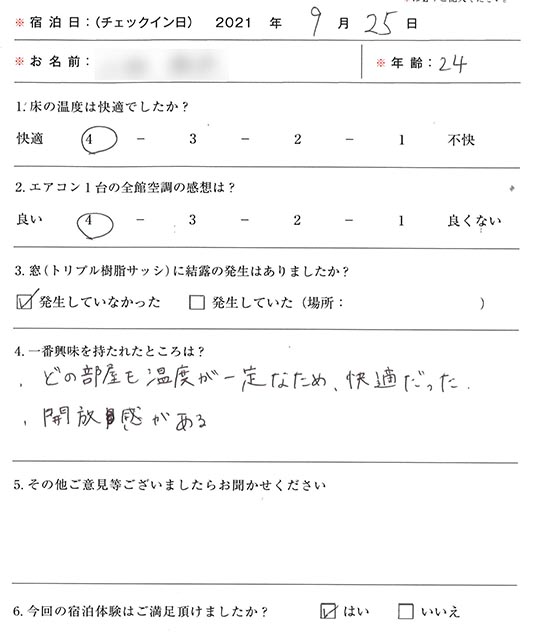 ※宿泊日：(チェックイン日) 2021 年 9 月 25 日
※お名前：
※年齢：24
1. 床の温度は快適でしたか？
快適 4 － 3 － 2 － 1 不快
2. エアコン１台の全館空調の感想は？
良い 4 － 3 － 2 － 1 良くない
3. 窓(トリプル樹脂サッシ)に結露の発生はありましたか？
☑ 発生していなかった □ 発生していた（場所： ）
4. 一番興味を持たれたところは？
・どの部屋も温度が一定なため、快適だった.
・開放感がある
5. その他ご意見等ございましたらお聞かせください
6. 今回の宿泊体験はご満足頂けましたか？ ☑ はい □ いいえ